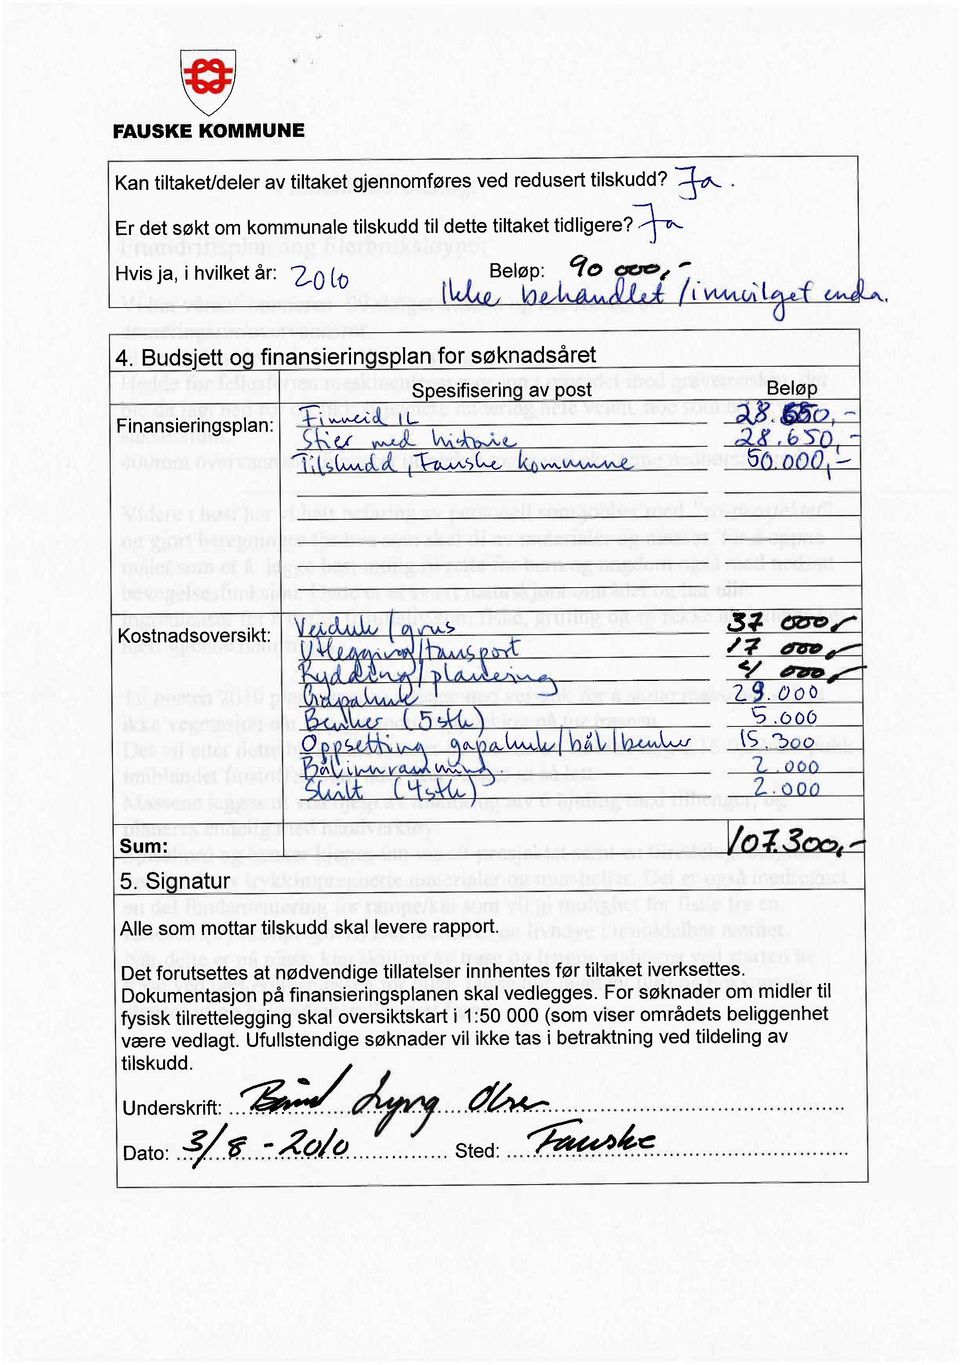 FAUSKE KOMMUNE
Kan tiltaket/deler av tiltaket gjennomføres ved redusert tilskudd? Ja.
Er det søkt om kommunale tilskudd til dette tiltaket tidligere? Ja
Hvis ja, i hvilket år: 2010 Beløp: 90 000,-
Ikke behandlet / innvilget enda.
4. Budsjett og finansieringsplan for søknadsåret
Spesifisering av post Beløp
Finansieringsplan: Finneid IL 28.650,-
Stier med historie 28.650,-
Tilskudd, Fauske kommune 50.000,-
Kostnadsoversikt: Veiduk / grus 37 000,-
Utlegging/transport 17 000,-
Rydding/planering 4 000,-
Gapahuk 25.000
Benker (5 stk) 5.000
Oppsetting gapahuk/bål/benker 15.300
Bål innramming. 2.000
Skilt (4 stk) 2.000
Sum: 107.300,-
5. Signatur
Alle som mottar tilskudd skal levere rapport.
Det forutsettes at nødvendige tillatelser innhentes før tiltaket iverksettes.
Dokumentasjon på finansieringsplanen skal vedlegges. For søknader om midler til
fysisk tilrettelegging skal oversiktskart i 1:50 000 (som viser områdets beliggenhet
være vedlagt. Ufullstendige søknader vil ikke tas i betraktning ved tildeling av
tilskudd.
Underskrift: Lyng Olsen
Dato: 3/8 - 2010 Sted: Fauske